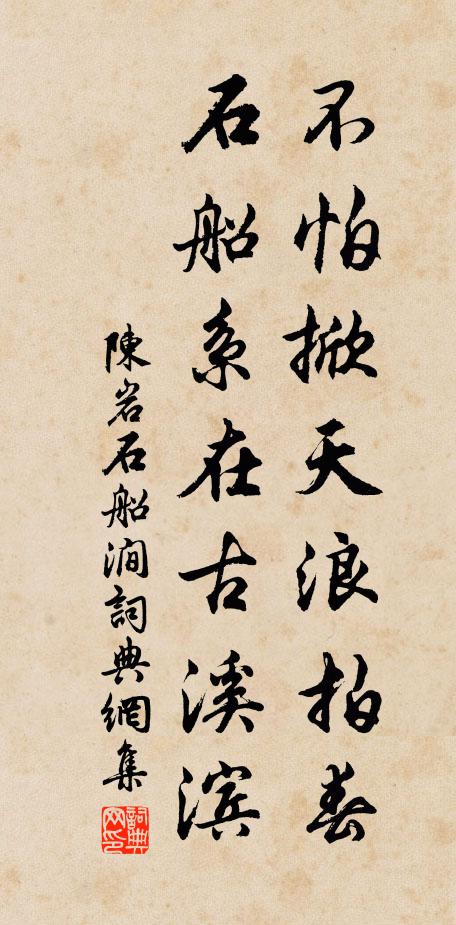 不怕掀天浪拍春
石船系在古溪滨
陳岩石船澗詞典網集
詞典网印